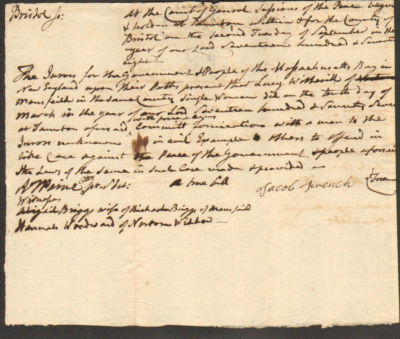 Bristol ss. At the Court of General Sessions of the Peace begun
& holden at Taunton within & for the County of
Bristol on the second Tuesday of September in the
year of our Lord Seventeen hundred & Seventy
eight
The Jurors for the Government & People of the Massachusetts Bay in
New England upon their Oaths present that Lucy of
Mansfield in the same County Single Woman did on the tenth day of
March in the year of our Lord Seventeen hundred & Seventy Seven
with force & arms
at Taunton aforesaid committ fornication with a man to the
Jurors unknown in evil Example to others to offend in
like Case against the Peace of the Government & people aforesaid
the Laws of the same in such Case made & provided
a true bill
Jacob French Foreman
Witness
Abigail Briggs wife of Richard Briggs of Mansfield
Hannah Woodward of Norton Widow